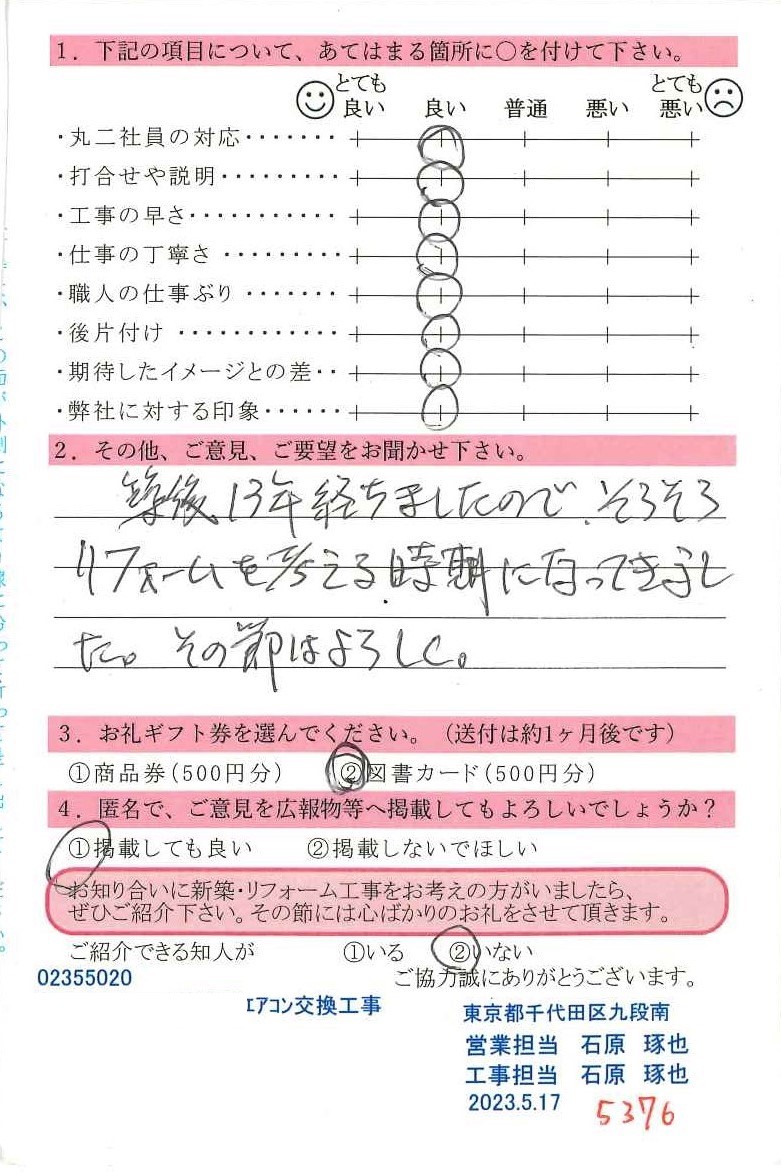 1. 下記の項目について、あてはまる箇所に○を付けて下さい。
とても良い 良い 普通 悪い とても悪い
・丸二社員の対応・・・・・・・
・打合せや説明・・・・・・・・・
・工事の早さ・・・・・・・・・・・
・仕事の丁寧さ・・・・・・・・・
・職人の仕事ぶり・・・・・・・
・後片付け・・・・・・・・・・・・
・期待したイメージとの差・・
・弊社に対する印象・・・・・・
2. その他、ご意見、ご要望をお聞かせ下さい。
築後13年経ちましたので、そろそろ
リフォームを考える時期になってきまし
た。その節はよろしく。
3. お礼ギフト券を選んでください。（送付は約1ヶ月後です）
①商品券（500円分） ②図書カード（500円分）
4. 匿名で、ご意見を広報物等へ掲載してもよろしいでしょうか？
①掲載しても良い ②掲載しないでほしい
お知り合いに新築・リフォーム工事をお考えの方がいましたら、
ぜひご紹介下さい。その節には心ばかりのお礼をさせて頂きます。
ご紹介できる知人が ①いる ②いない
02355020
ご協力誠にありがとうございます。
エアコン交換工事
東京都千代田区九段南
営業担当 石原 琢也
工事担当 石原 琢也
2023.5.17
5376